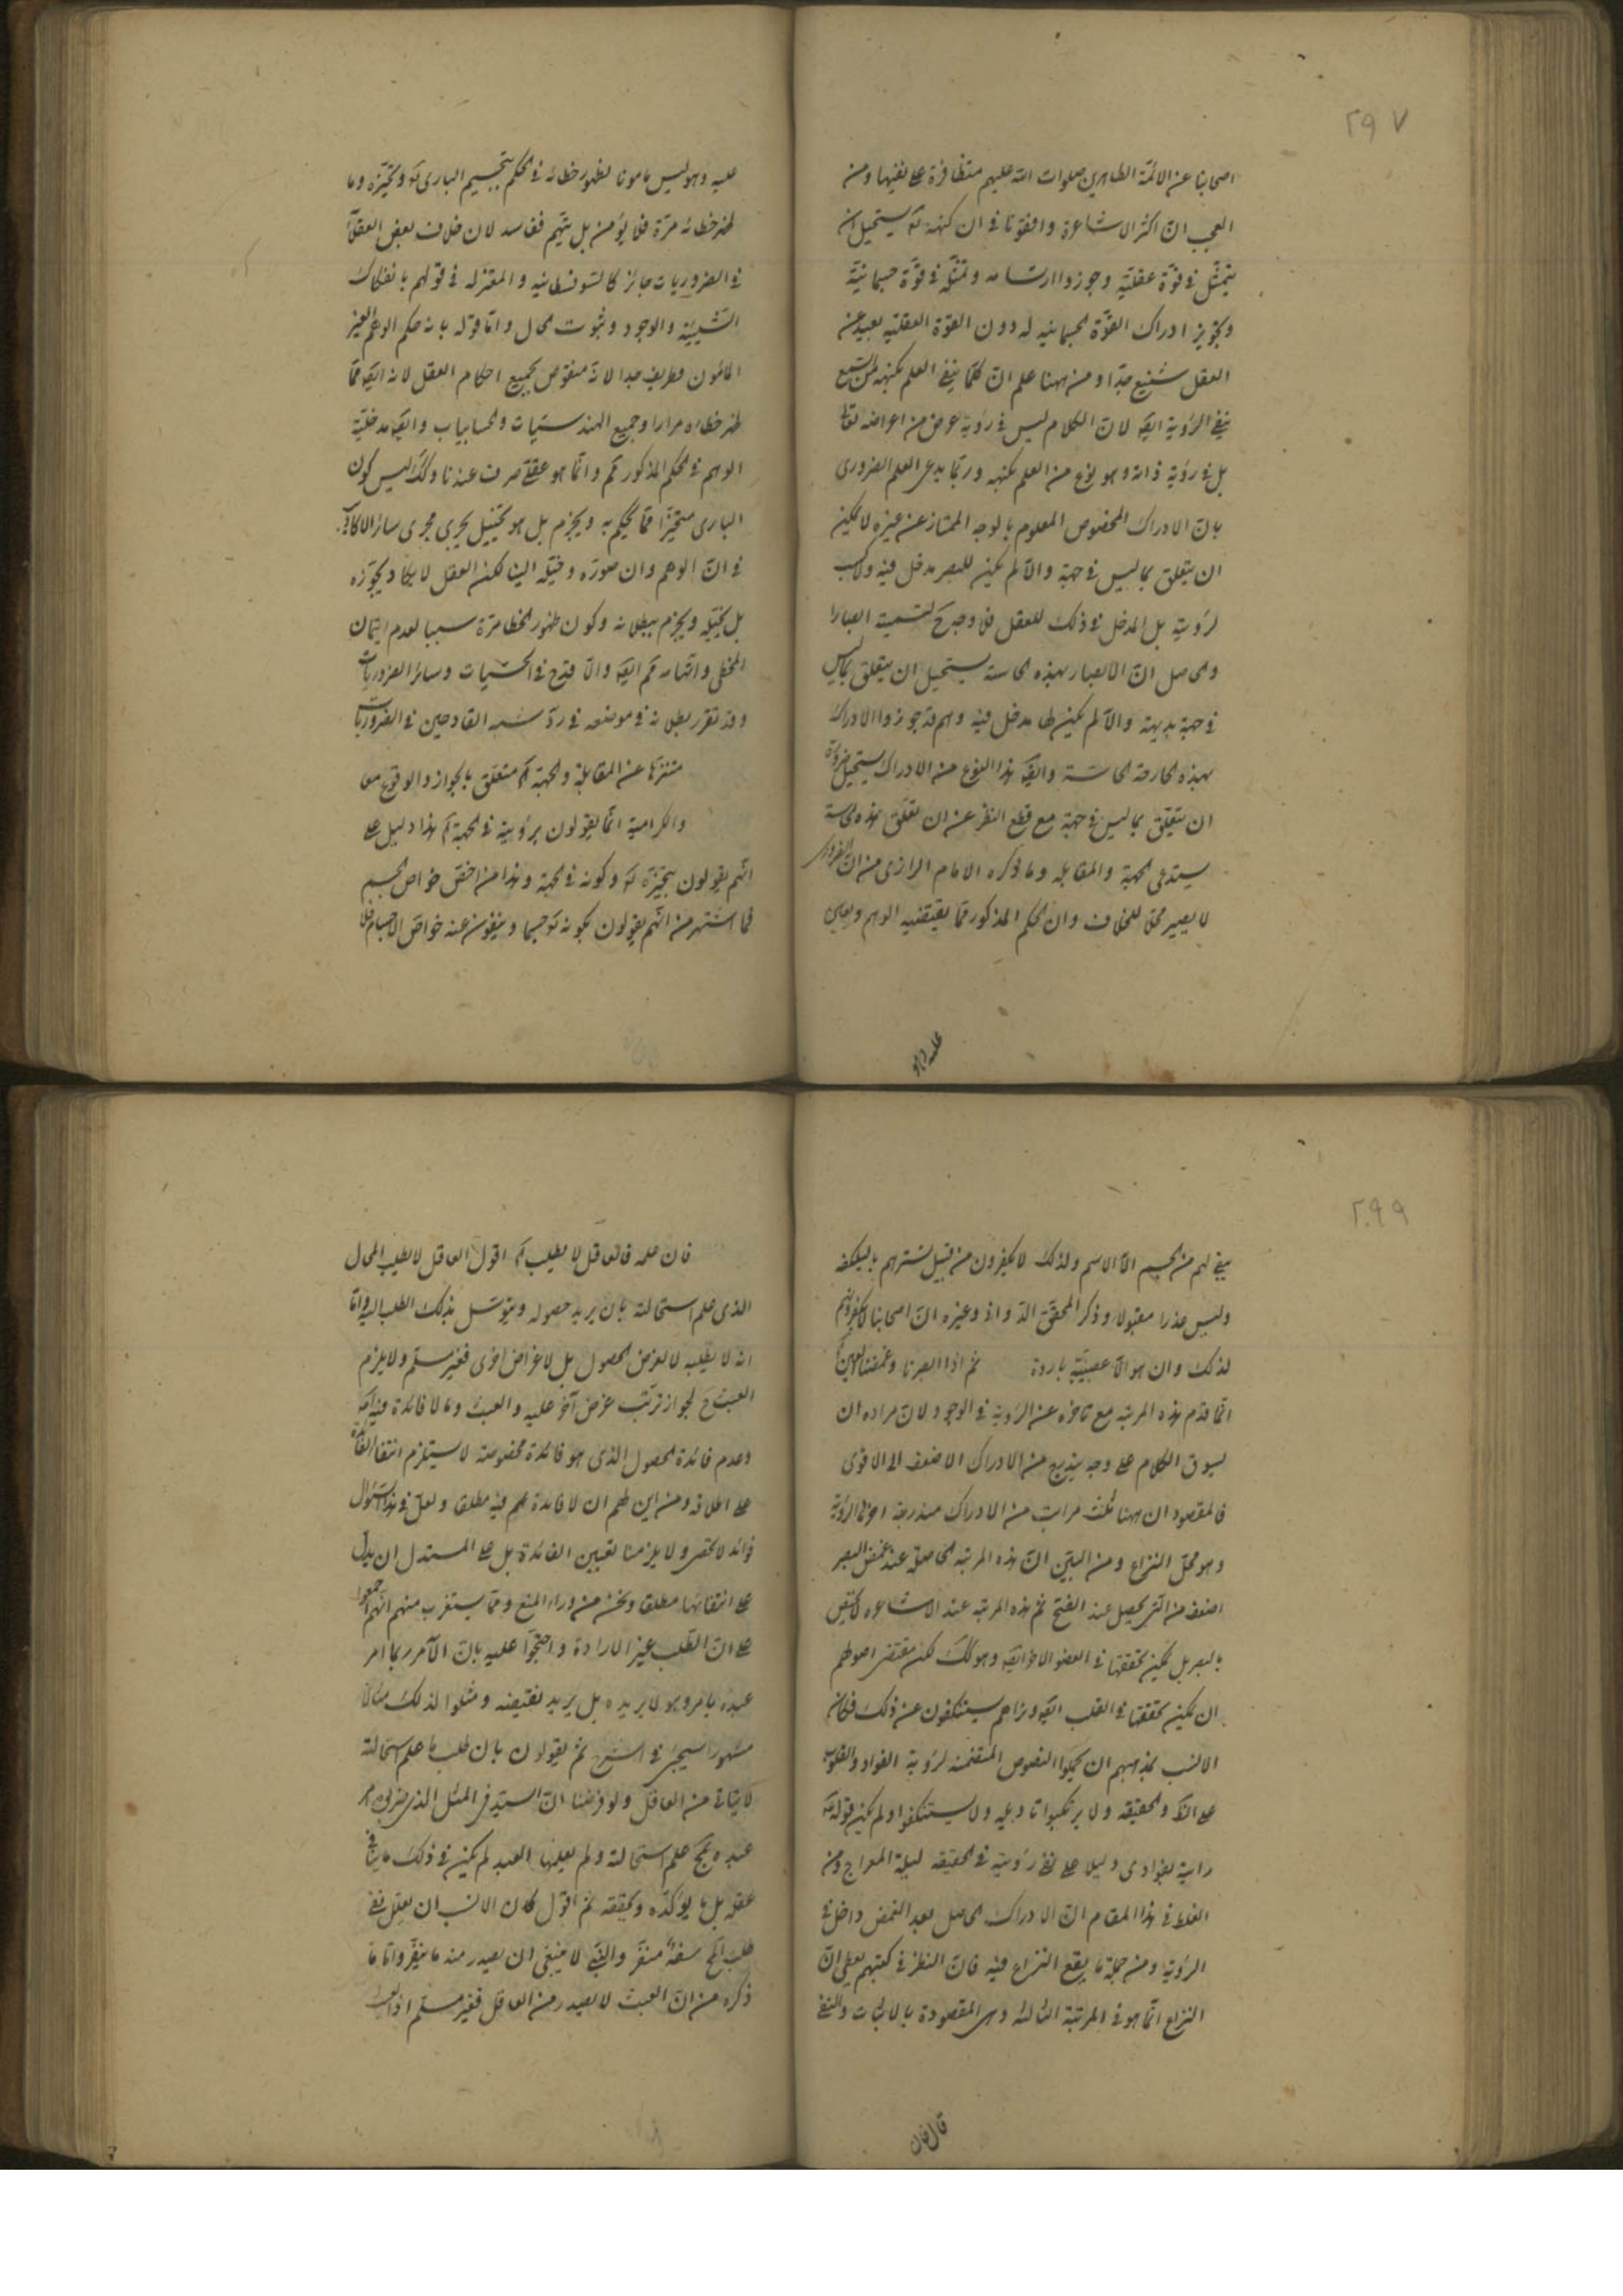 ٢٩٧
اصحابنا عن الائمّة الطاهرين صلوات الله عليهم متظافرة على نفيها ومن
العجب انّ اكثر الاشاعرة وافقونا في ان كنهه تع يستحيل ان
يتمثّل في قوّة عقليّة وجوزوا ارتسامه وتمثّله في قوّة جسمانيّة
وتجويز ادراك القوّة الجسمانيه له دون القوّة العقليّه بعيد عن
العقل شنيع جدّا ومن ههنا علم انّ كلّما ينفي العلم بكنهه
ينفي الرؤية ايضا لانّ الكلام ليس في رؤية عرض من اعراضه تعالى
بل في رؤية ذاته وهو نوع من العلم بكنهه وربّما يدعى العلم الضروري
بانّ الادراك المخصوص المعلوم بالوجه الممتاز عن غيره لا يمكن
ان يتعلق بما ليس في جهة والّا لم يكن للبصر مدخل فيه ولا كسب
لرؤيته بل المدخل في ذلك للعقل فلا وجه ح لتسمية ابصارا
والحاصل انّ الابصار بهذه الحاسة يستحيل ان يتعلق بما ليس
في جهة بديهة والّا لم يكن لها مدخل فيه وهم قد جوزوا الادراك
بهذه الجارحة الحاسّة وايضا هذا النوع من الادراك يستحيل ضرورة
ان يتعلّق بما ليس في جهة مع قطع النظر عن ان تعلّق هذه الحاسة
يستدعى الجهة والمقابله وما ذكره الامام الرازي من انّ الضروري
لا يصير محلا للخلاف وان الحكم المذكور ممّا يقتضيه الوهم ويعين
عليه وهو
عليه وهو ليس مامونا لظهور خطائه في الحكم بتجسيم الباري تع وتحيّزه وما
ظهر خطائه مرّة فلا يؤمن بل يتّهم ففاسد لان خلاف بعض العقلاء
في الضروريات جائز كالسوفسطائيه والمعتزله في قولهم بانفكاك
الشيئيّة والوجود وثبوت محال وامّا قوله بانه حكم الوهم الغير
المأمون فطريف جدا لانّه منقوض بجميع احكام العقل لانه ايضا ممّا
ظهر خطاه مرارا وجميع الهندسيّات والحسابيات وايضا مدخليّة
الوهم في الحكم المذكور مم وانّما هو عقلي صرف عندنا وكذلك ليس كون
الباري متحيّزا ممّا يحكم به ويجزم بل هو تخييل يجري مجرى سائر الاكاذيب
في انّ الوهم وان صوّره وخيّله الينا لكن العقل لا يكاد يجوّزه
بل يحيله ويجزم ببطلانه وكون ظهور الخطا مرّة سببا لعدم ائتمان
المخطي واتّهامه مم ايضا والّا قدح في الحسّيات وسائر الضروريات
وقد تقرر بطلانه في موضعه في ردّ شبه القادحين في الضروريات
متنزّها عن المقابلة والجهة آه متعلّق بالجواز والوقوع معا
والكراميه انّما يقولون برؤيته في الجهة آه هذا دليل على
انّهم يقولون بتحيّزه تع وكونه في الجهة وهذا من اخصّ خواص الجسم
فما اشتهر من انّهم يقولون بكونه تع جسما وينفون عنه خواصّ الاجسام فلا
٢٩٩
يبقى لهم من الجسم الّا الاسم ولذلك لا يكفرون من قبيل تسترهم بالبلكفه
وليس عذرا مقبولا وذكر المحقّق الدّواني وغيره انّ اصحابنا لا يكفرونهم
لذلك وان هو الّا عصبيّة باردة ثم اذا ابصرنا وغمضنا العين
انّما قدّم هذه المرتبه مع تاخره عن الرؤية في الوجود لانّ مراده ان
يسوق الكلام على وجه يتدرج من الادراك الاضعف الى الاقوى
فالمقصود ان ههنا ثلث مراتب من الادراك مندرجة اخرها الرؤية
وهو محلّ النزاع ومن البيّن انّ هذه المرتبه الحاصلة عند غمض البصر
اضعف من الّتي يحصل عند الفتح ثم هذه المرتبه عند الاشاعره لا يختص
بالبصر بل يمكن تحققها في العضو الاخر ايضا وهو كذلك لكن مقتضى اصولهم
ان يمكن تحققها في القلب ايضا ونراهم يستنكفون عن ذلك فكان
الانسب بمذهبهم ان يحملوا النصوص المتضمنه لرؤية الفؤاد والقلوب
على الظ والحقيقه ولا يرتكبوا تاويله ولا يستنكفوا ولم يكن قوله
رايته بفؤادي دليلا على نفي رؤيته في الحقيقه ليلة المعراج ومن
الغلط في هذا المقام انّ الادراك الحاصل بعد الغمض داخل في
الرؤية ومن جملة ما يقع النزاع فيه فانّ النظر في كتبهم يعطى انّ
النزاع انّما هو في المرتبة الثالثه وهى المقصودة بالاثبات والنفي
قال فان
فان علمه فالعاقل لا يطلب آه اقول العاقل لا يطلب المحال
الذي علم استحالته بان يريد حصوله ويتوسّل بذلك الطلب اليه وامّا
انه لا يطلبه لا لغرض الحصول بل لاغراض اخرى فغير مسلّم ولا يلزم
العبث ح لجواز ترتّب غرض آخر عليه والعبث وما لا فائدة فيه
وعدم فائدة الحصول الذي هو فائدة مخصوصة لا يستلزم انتفا الفائدة
على اطلاقه ومن اين لهم ان لا فائدة لهم فيه مطلقا ولعلّ في هذا السؤال
فوائد لا تحصر ولا يلزمنا تعيين الفائدة بل على المستدل ان يدلّ
على انتفائها مطلقا ونحن من وراء المنع وممّا يستغرب منهم انّهم اجمعوا
على انّ الطّلب غير الارادة واحتجّوا عليه بانّ الآمر ربما امر
عبده بامر وهو لا يريده بل يريد نقيضه ومثلوا لذلك مثالا
مشهورا سيجئ في الشرح ثمّ يقولون بان طلب ما علم استحالته
لا يتاتى من العاقل ولو فرضنا انّ السيّد في المثل الذي ضربوه
عبده بمح علم استحالته ولم يعلمها العبد لم يكن في ذلك ما ينافي
عقله بل ما يؤكّده ويحققه ثم اقول كان الانسب ان يعلّل نفي
طلب المح سفه منفّر والنبيّ لا ينبغي ان يصدر منه ما ينفّر وامّا ما
ذكره من انّ العبث لا يصدر من العاقل فغير مسلّم